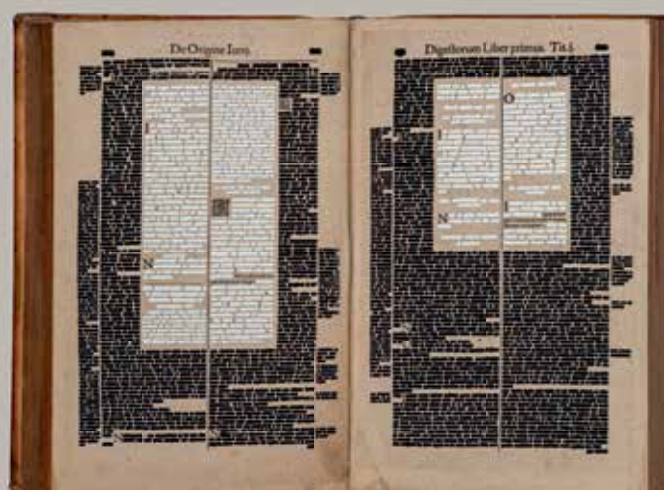 De Origine Iuris.
I
N
Digestorum Liber primus. Tit.j.
I
N
O
I